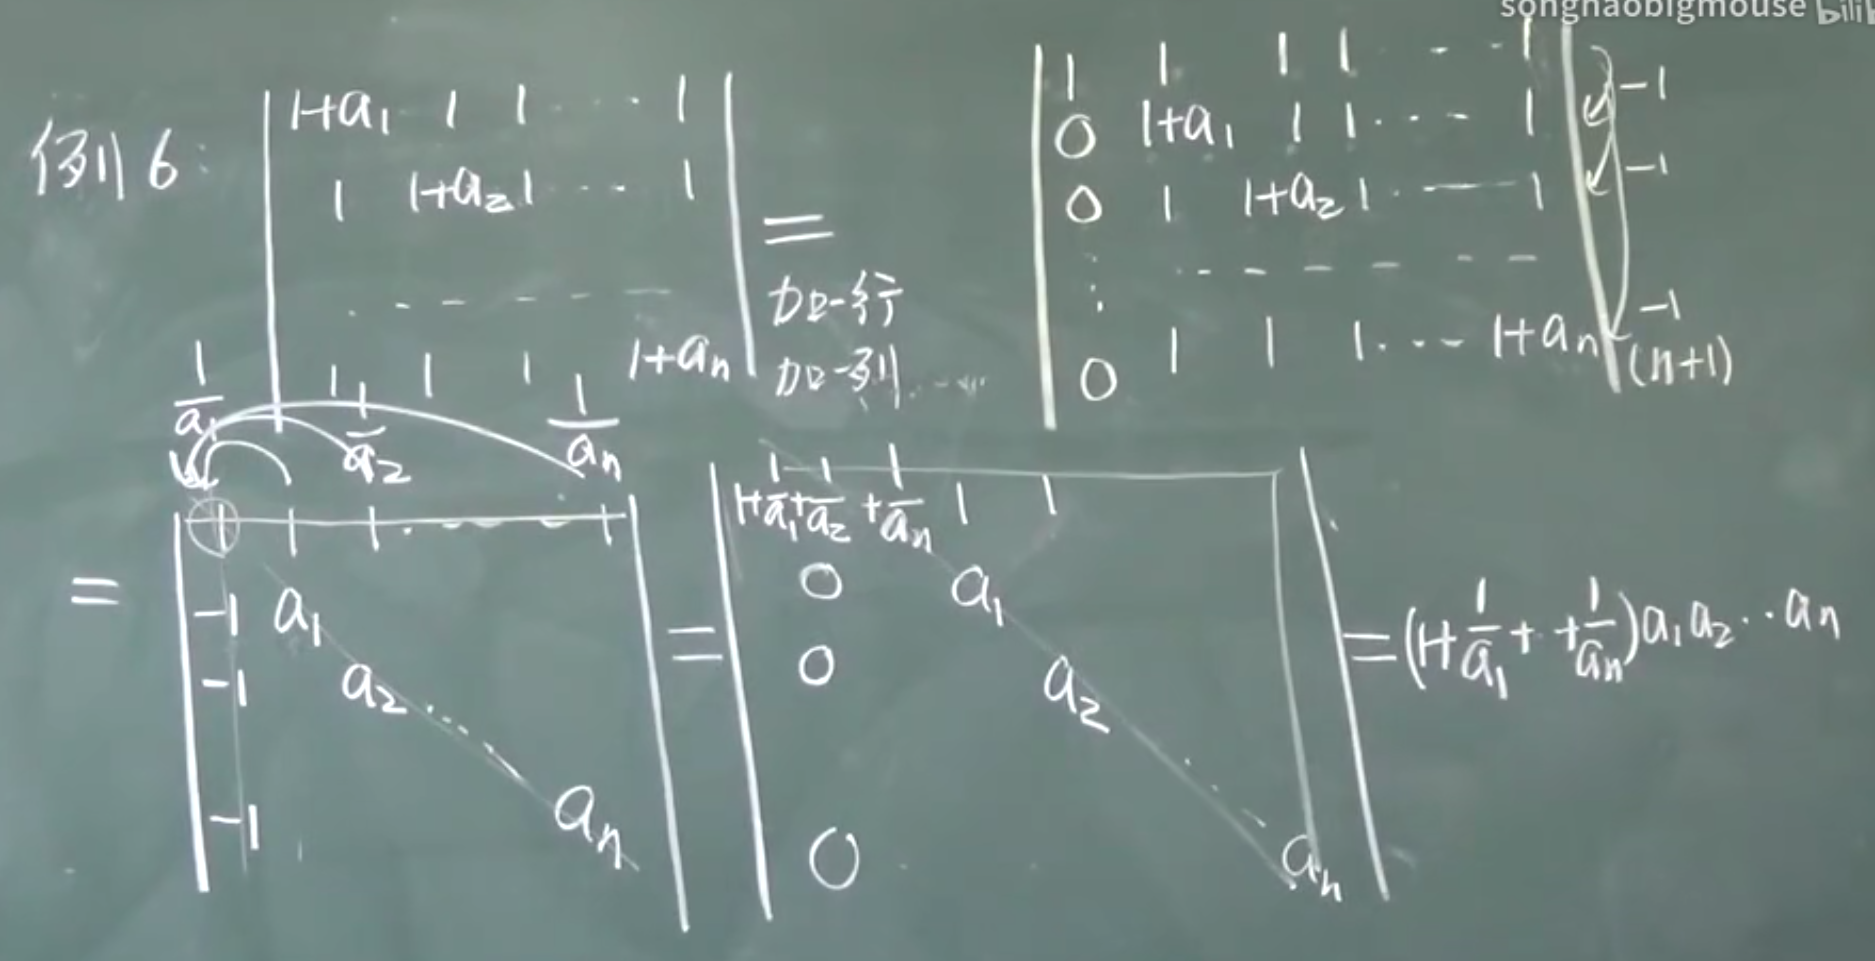 songhaobigmouse bili
例6:
| 1+a₁ 1 1 ... 1 |
| 1 1+a₂ 1 ... 1 |
| . - - - - - |
| 1 1 1 1+aₙ |
=
加一行
加一列 ....
| 1 1 1 1 ... 1 | -1
| 0 1+a₁ 1 1 ... 1 | -1
| 0 1 1+a₂ 1 ... 1 |
| ⋮ - - - - - - - |
| 0 1 1 1 ... 1+aₙ | -1 (n+1)
1/a₁ 1/a₂ 1/aₙ
= | 1 1 1 ... 1 |
| -1 a₁ |
| -1 a₂ ... |
| -1 aₙ |
= | 1+1/a₁+1/a₂ +1/aₙ 1 1 |
| 0 a₁ |
| 0 a₂ |
| 0 aₙ |
=(1+1/a₁+ · +1/aₙ)a₁a₂··aₙ